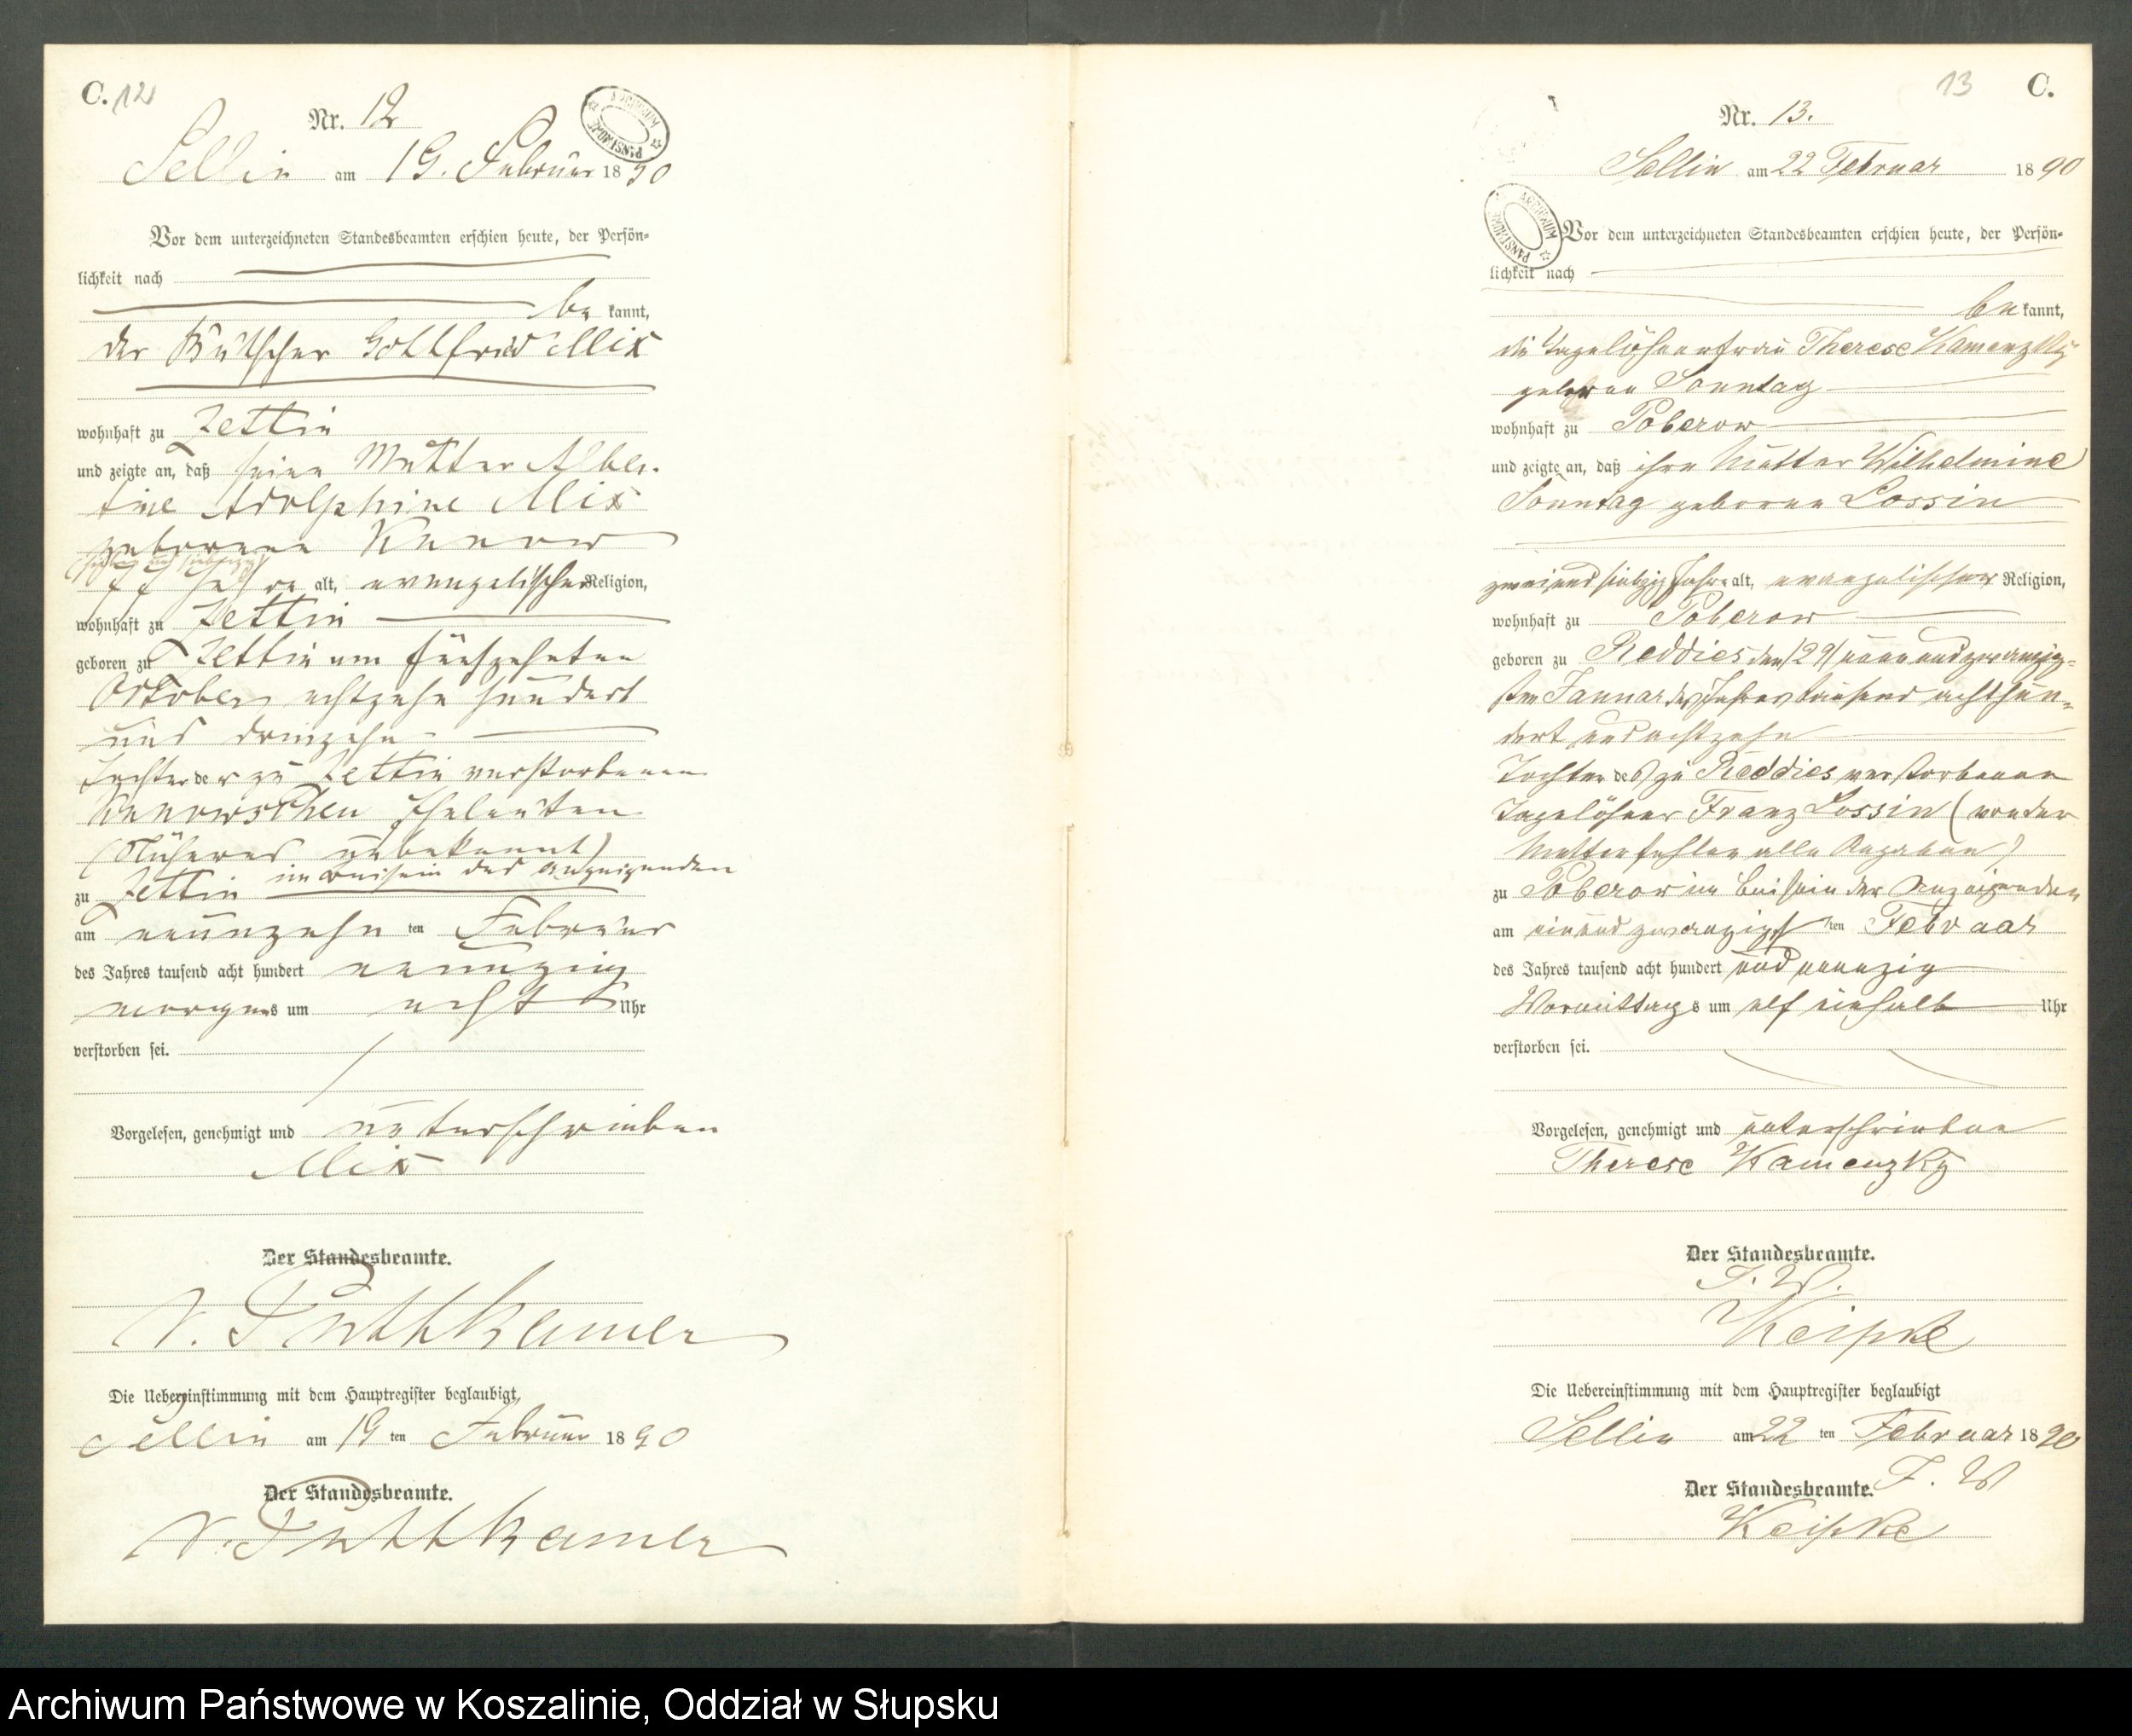 C. 12
Nr. 12
ARCHIWUM PAŃSTWOWE
Sellin am 19. Februar 1890
Vor dem unterzeichneten Standesbeamten erschien heute, der Persön-
lichkeit nach
be kannt,
der Kutscher Gottfried Mix
wohnhaft zu Zettin
und zeigte an, daß seine Mutter Alber-
tine Adolphine Mix
geborene Kunow
(sechs und siebzig)
Jahre alt, evangelischer Religion,
wohnhaft zu Zettin
geboren zu Zettin am fünfzehnten
Oktober achtzehn hundert
und dreizehn
Tochter der zu Zettin verstorbenen
Kunowschen Eheleuten
(Näheres unbekannt)
zu Zettin im Beisein des Anzeigenden
am neunzehn ten Februar
des Jahres tausend acht hundert neunzig
morgens um acht Uhr
verstorben sei.
Vorgelesen, genehmigt und unterschrieben
Mix
Der Standesbeamte.
v. Puttkamer
Die Uebereinstimmung mit dem Hauptregister beglaubigt,
Sellin am 19 ten Februar 1890
Der Standesbeamte.
v. Puttkamer
13 C.
Nr. 13.
Sellin am 22 Februar 1890
ARCHIWUM PAŃSTWOWE
Vor dem unterzeichneten Standesbeamten erschien heute, der Persön-
lichkeit nach
be kannt,
die Tagelöhnerfrau Therese Kamenzky
geborene Sonntag
wohnhaft zu Poberow
und zeigte an, daß ihre Mutter Wilhelmine
Sonntag geborene Lossin
zweiund siebzig Jahre alt, evangelischer Religion,
wohnhaft zu Poberow
geboren zu Reddies den (29) neun und zwanzig-
sten Januar des Jahres tausend achthun-
dert und achtzehn
Tochter des zu Reddies verstorbenen
Tagelöhner Franz Lossin (von der
Mutter fehlen alle Angaben)
zu Poberow im Beisein der Anzeigenden
am einund zwanzigst ten Februar
des Jahres tausend acht hundert und neunzig
Vormittags um elf einhalb Uhr
verstorben sei.
Vorgelesen, genehmigt und unterschrieben
Therese Kamenzky
Der Standesbeamte.
Keipke
Die Uebereinstimmung mit dem Hauptregister beglaubigt
Sellin am 22 ten Februar 1890
Der Standesbeamte.
Keipke
Archiwum Państwowe w Koszalinie, Oddział w Słupsku